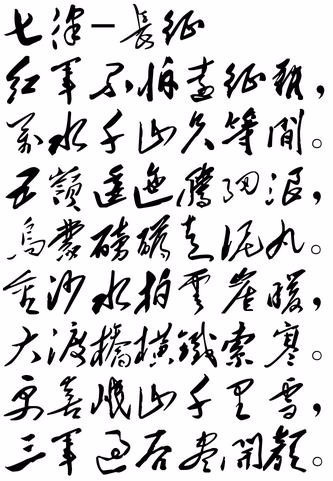 七律一長征
紅軍不怕遠征難，
萬水千山只等閒。
五嶺逶迤騰細浪，
烏蒙磅礴走泥丸。
金沙水拍雲崖暖，
大渡橋橫鐵索寒。
更喜岷山千里雪，
三軍過后盡開顏。